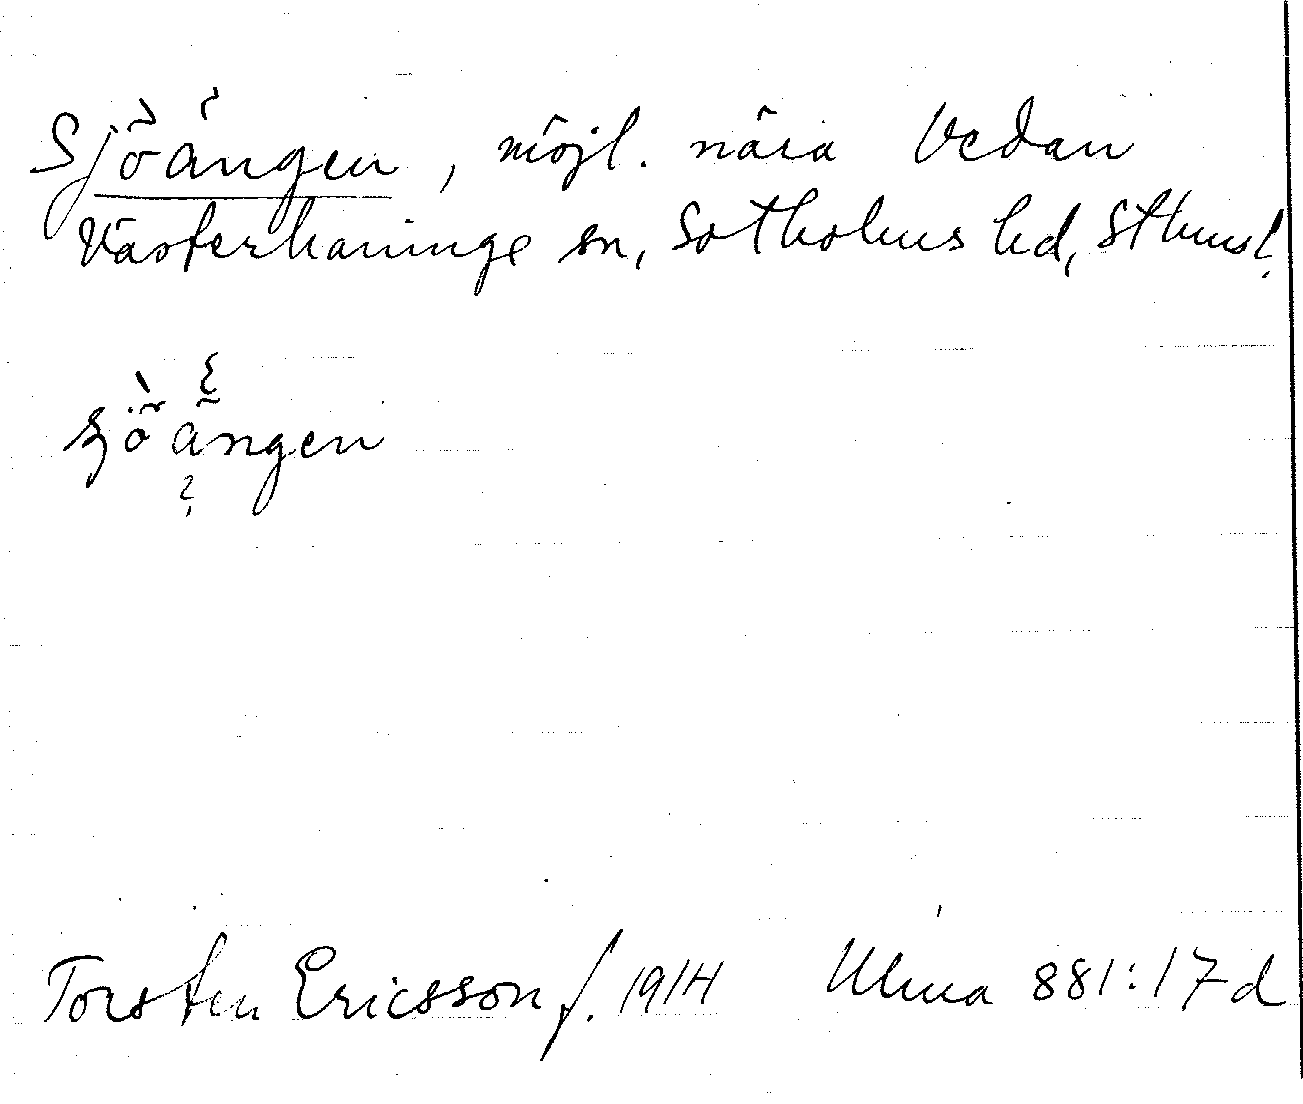 Sjöängen, möjl. nära Vedan
Västerhaninge sn, Sotholms hd, Sthmsl.
Sjöängen
?
Torsten Ericsson f. 1914 Ulma 881:17d